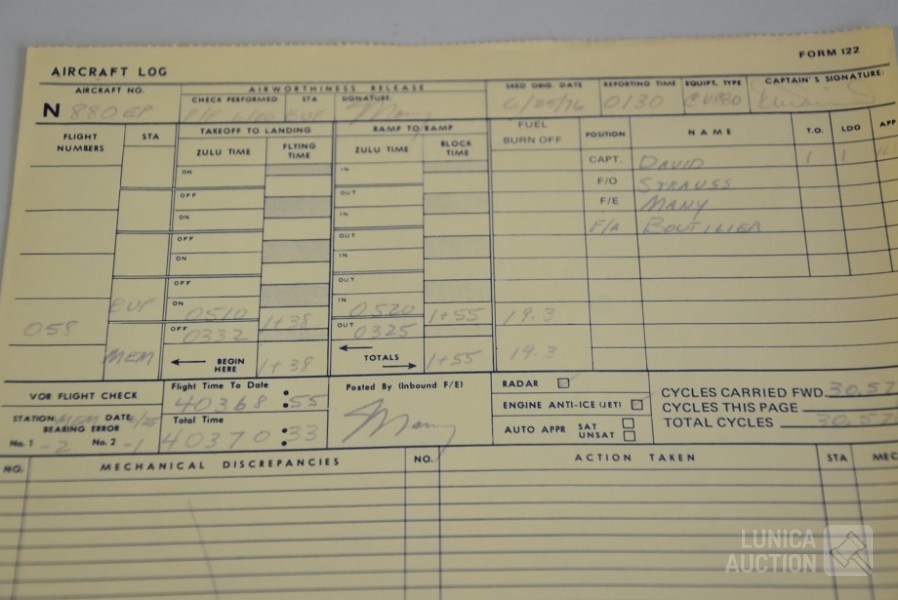 FORM 122
AIRCRAFT LOG
AIRCRAFT NO. AIRWORTHINESS RELEASE SKED ORIG. DATE REPORTING TIME EQUIPT. TYPE CAPTAIN'S SIGNATURE:
CHECK PERFORMED STA. SIGNATURE
N 880 EP BUF Many 6/25/76 0130
FLIGHT NUMBERS STA TAKEOFF TO LANDING RAMP TO RAMP FUEL BURN OFF POSITION NAME T.O. LDG APP
ZULU TIME FLYING TIME ZULU TIME BLOCK TIME
ON IN CAPT. DAVID 1 1
OFF OUT F/O STRAUSS
ON IN F/E MANY
OFF OUT F/A BOUTILIER
ON IN
OFF OUT
BUF ON 0510 1+38 IN 0520 1+55 19.3
058 OFF 0332 OUT 0325
MEM BEGIN HERE 1+38 TOTALS 1+55 19.3
VOR FLIGHT CHECK Flight Time To Date Posted By (Inbound F/E) RADAR CYCLES CARRIED FWD. 30,57
40368:55 ENGINE ANTI-ICE (JET) CYCLES THIS PAGE
STATION MEM DATE 6/25 Total Time Many AUTO APPR SAT UNSAT TOTAL CYCLES 30,57
BEARING ERROR
No. 1 -2 No. 2 -1 40370:33
NO. MECHANICAL DISCREPANCIES NO. ACTION TAKEN STA MEC
LUNICA
AUCTION